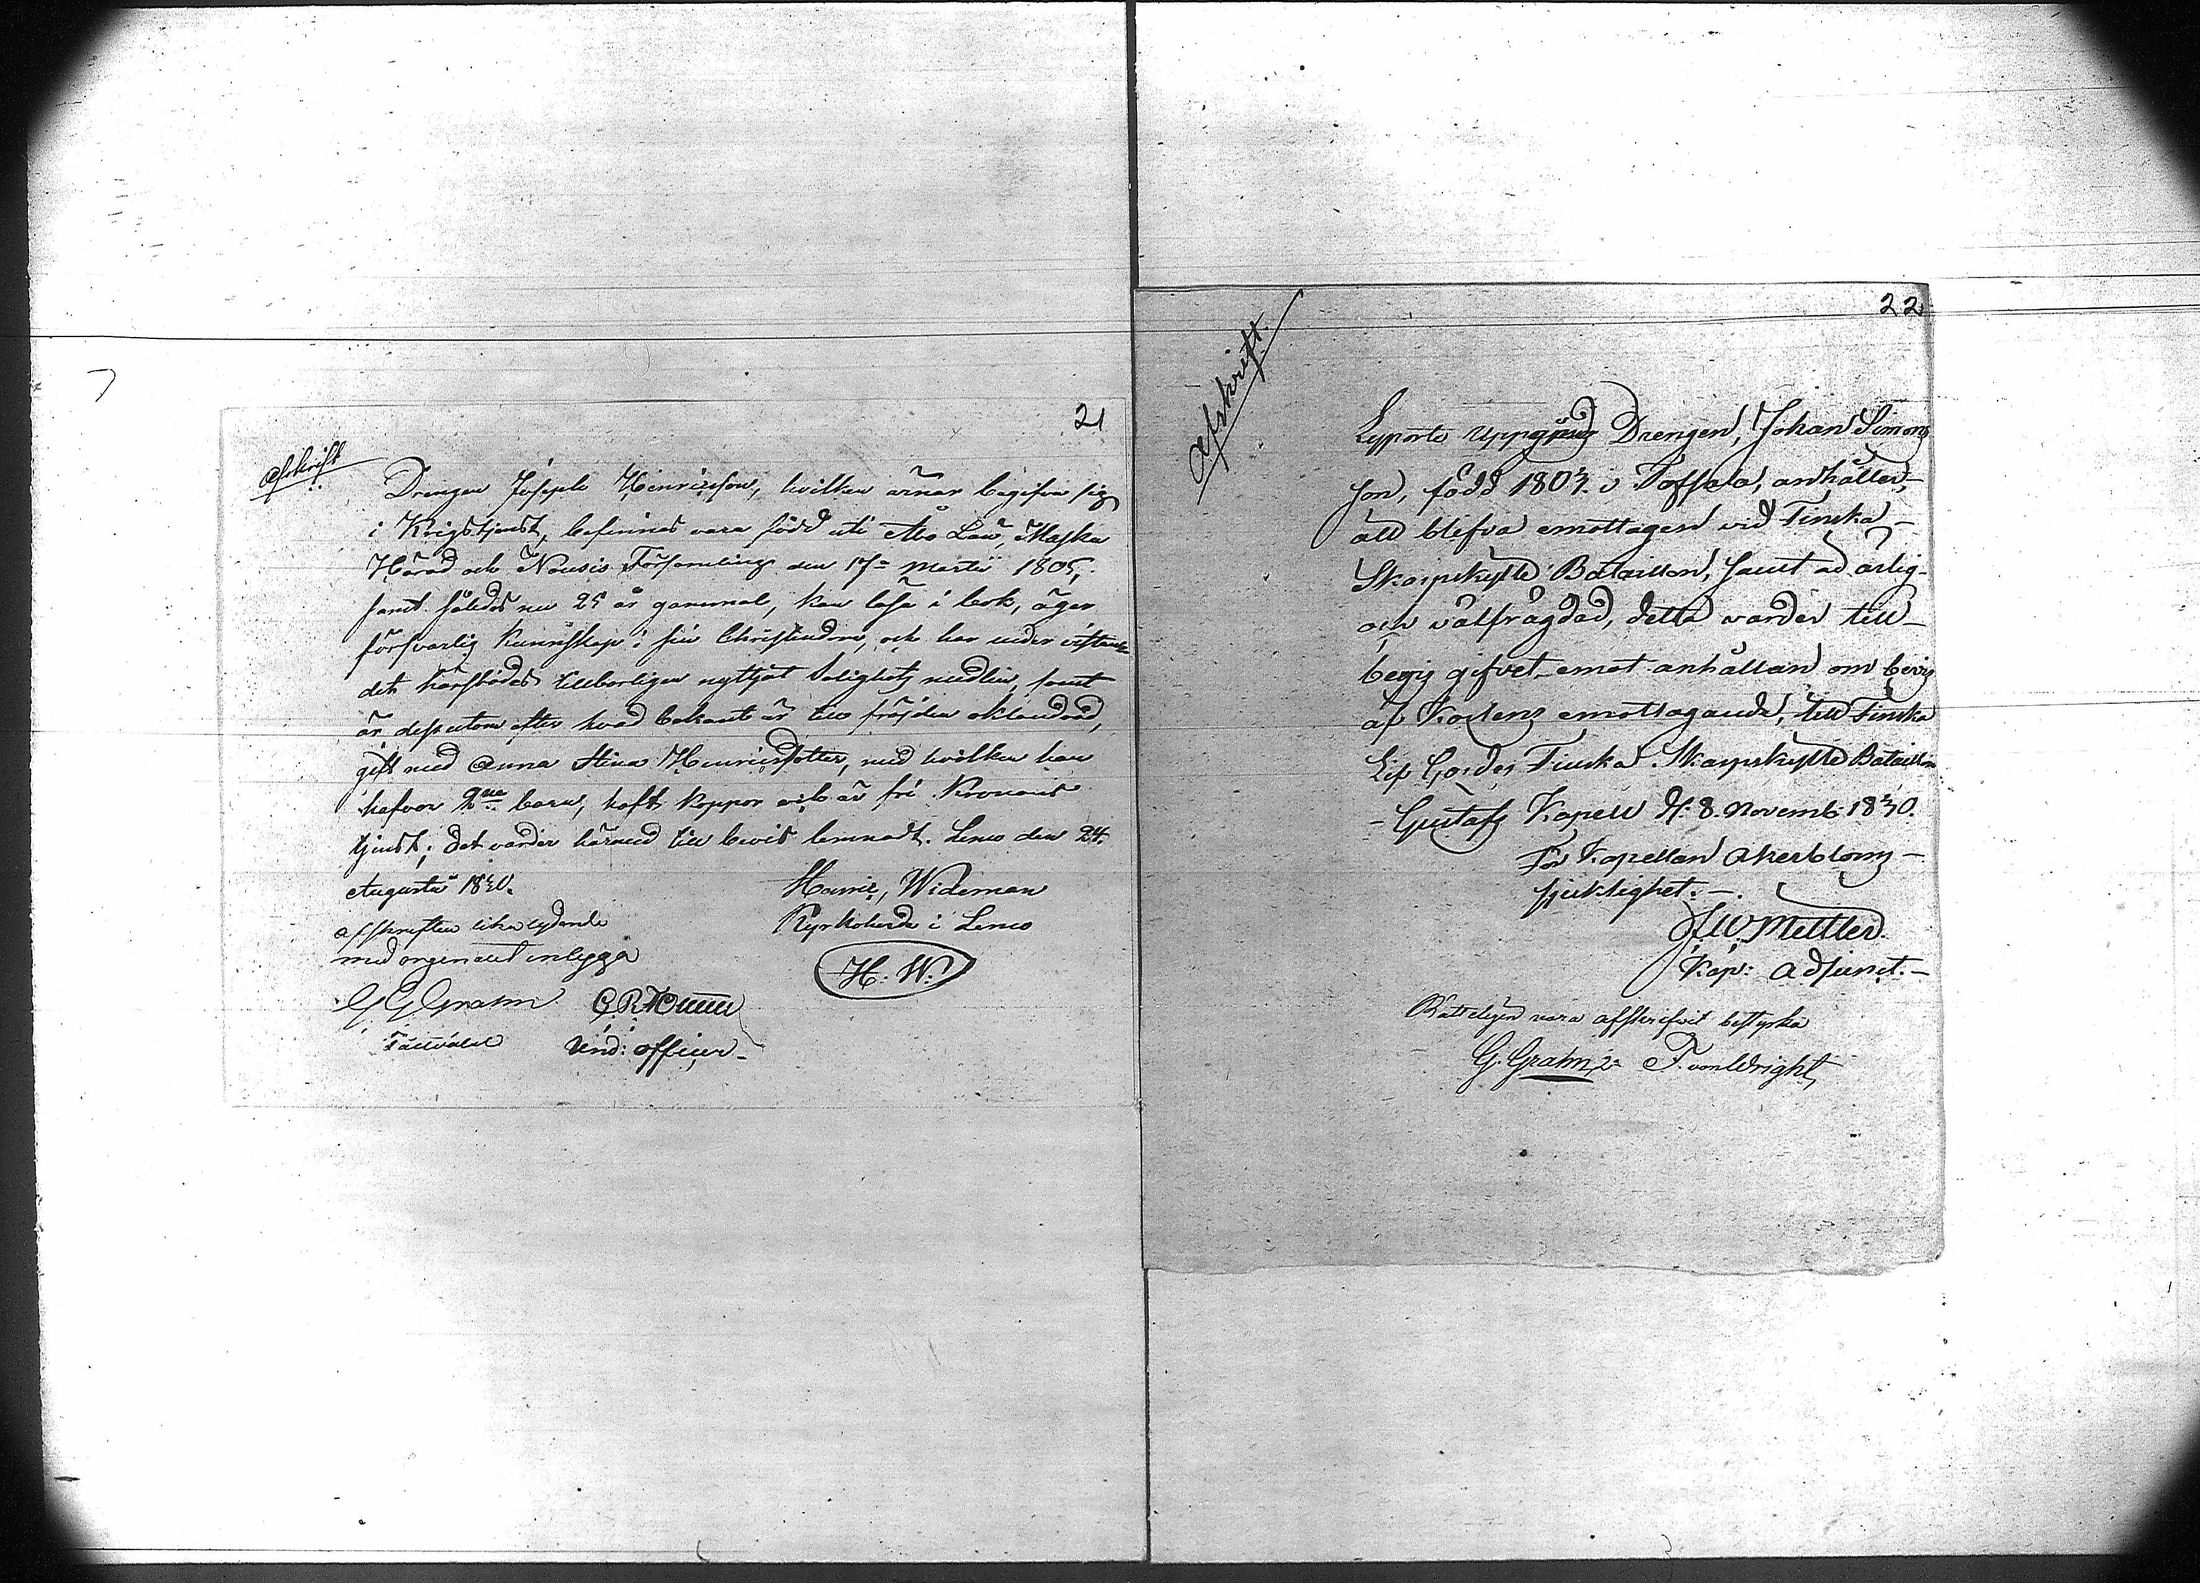 21
Afskrift
Drengen Joseph Henricsson, hvilken ärnar begifva sig
i Krigstjenst, befinnes vara född uti Åbo Län, Masku
Härad och Nousis Församling den 17de Martii 1805,
samt således nu 25 år gammal, kan läsa i bok, äger
försvarlig kunnskap i sin Christendom, och har under vistan-
det härstädes tillbörligen nyttjat Salighets medlen, samt
är dessutom efter hvad bekant är till fräjden oklandrad,
gift med Anna Stina Henricsdotter, med hvilken han
hafver 2ne barn, haft koppor och är fri Kronans
tjenst; det varder härmed till bevis lemnadt. Lemo den 24.
Augusti 1830.
Henric Wideman
Kyrkoherde i Lemo
H. W.
Afskriften lika lydande
med orgenalet intygga
G Grahn
Fältväbel
Und: officer
22
Afskrift.
Uppgifver Drengen, Johan Simons
son, född 1803. i Toffsala, anhåller,
att blifva emottagen vid Finska
Skarpskytte Bataillon, samt ad ärlig
och välfrägdad, detta warder till
bevis gifvet emot anhållan om bevis
af Karlens emottagande, till Finska
Lif Gardes Finska Skarpskytte Bataillon
Gustafs Kapell d. 8. Novemb. 1830.
För Kapellan Åkerbloms
sjuklighet.
J W Mettler
Kap: Adjunct.
Rätteligen vara afskrifvit bestyrka
G. Grahn F. von Wright